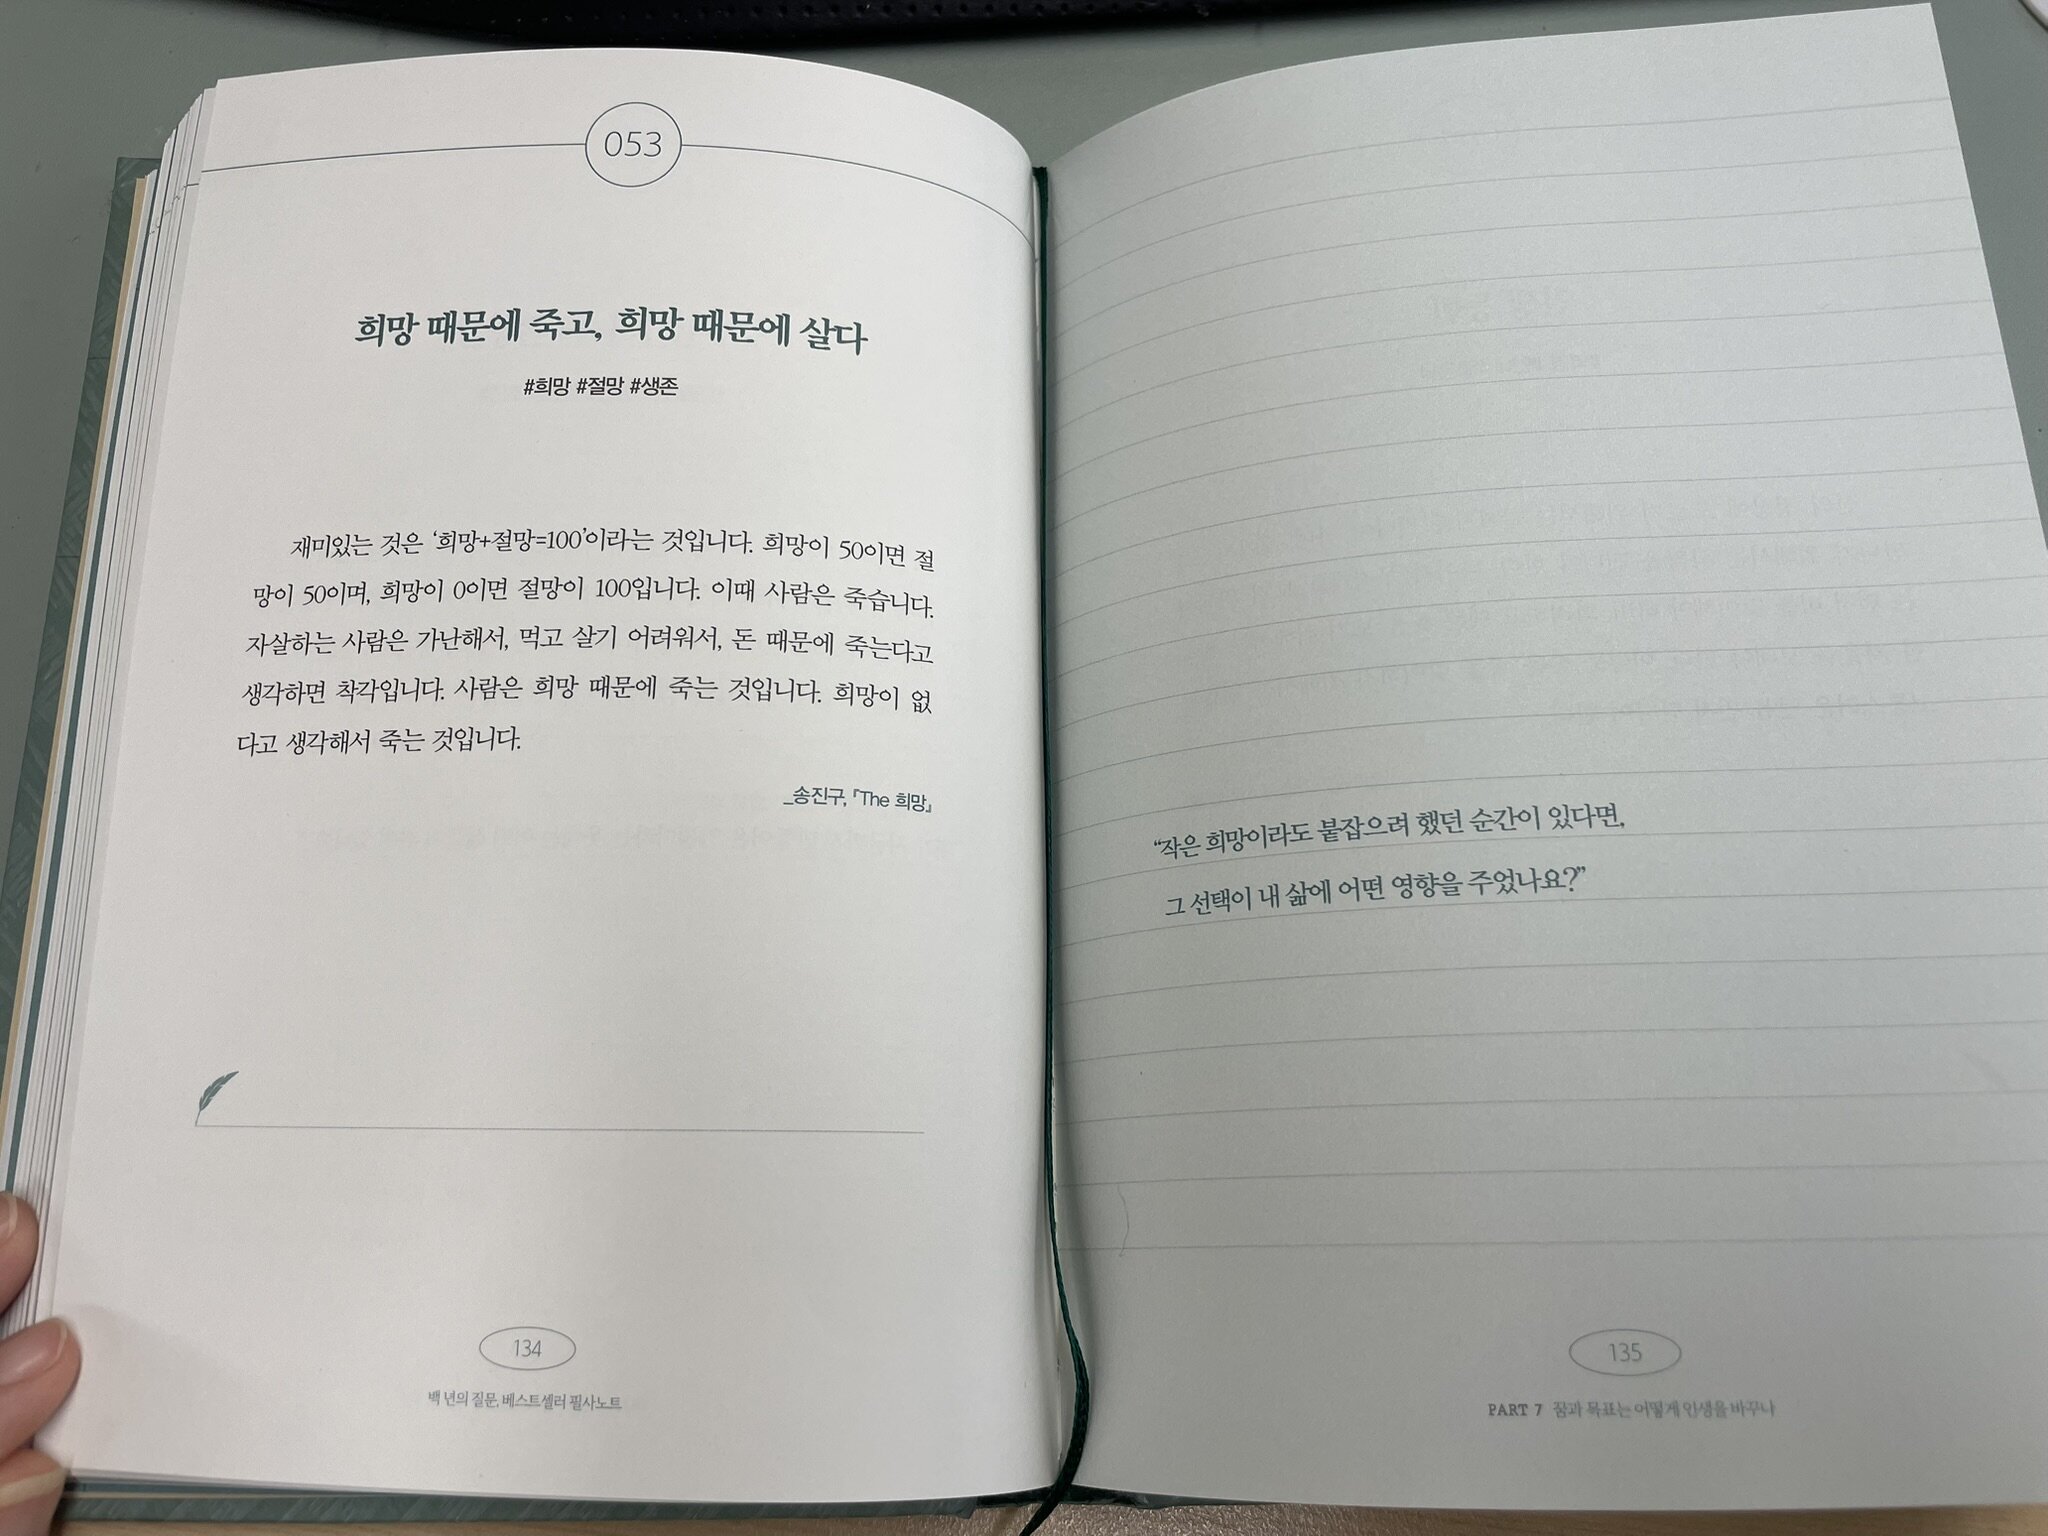 053
희망 때문에 죽고, 희망 때문에 살다
#희망 #절망 #생존
재미있는 것은 ‘희망+절망=100’이라는 것입니다. 희망이 50이면 절
망이 50이며, 희망이 0이면 절망이 100입니다. 이때 사람은 죽습니다.
자살하는 사람은 가난해서, 먹고 살기 어려워서, 돈 때문에 죽는다고
생각하면 착각입니다. 사람은 희망 때문에 죽는 것입니다. 희망이 없
다고 생각해서 죽는 것입니다.
_송진구, 『The 희망』
134
백 년의 질문, 베스트셀러 필사노트
“작은 희망이라도 붙잡으려 했던 순간이 있다면,
그 선택이 내 삶에 어떤 영향을 주었나요?”
135
PART 7 꿈과 목표는 어떻게 인생을 바꾸나